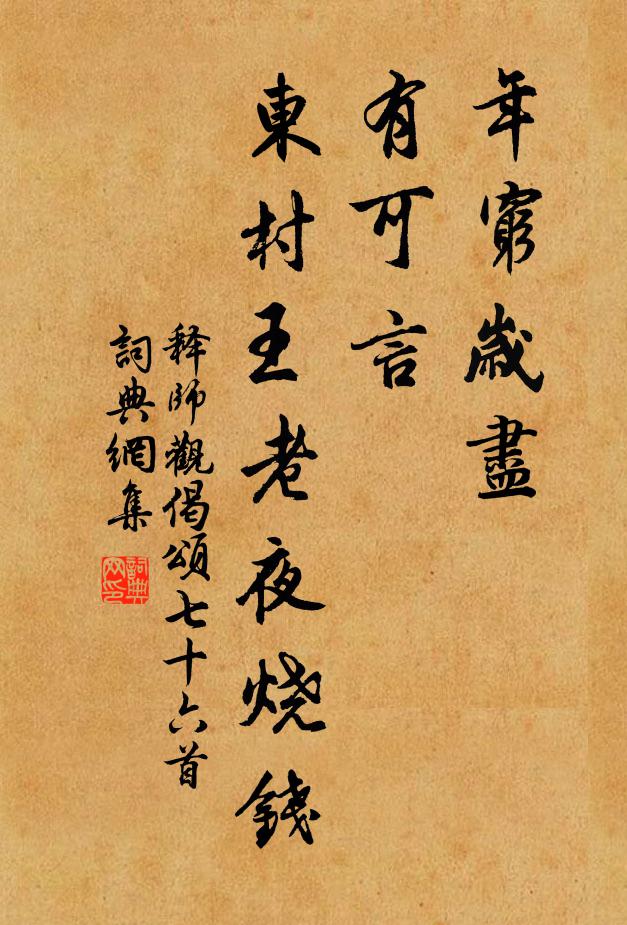 年窮歲盡
有可言
東村王老夜烧錢
释師觀偈頌七十六首
詞典網集
詞典网印